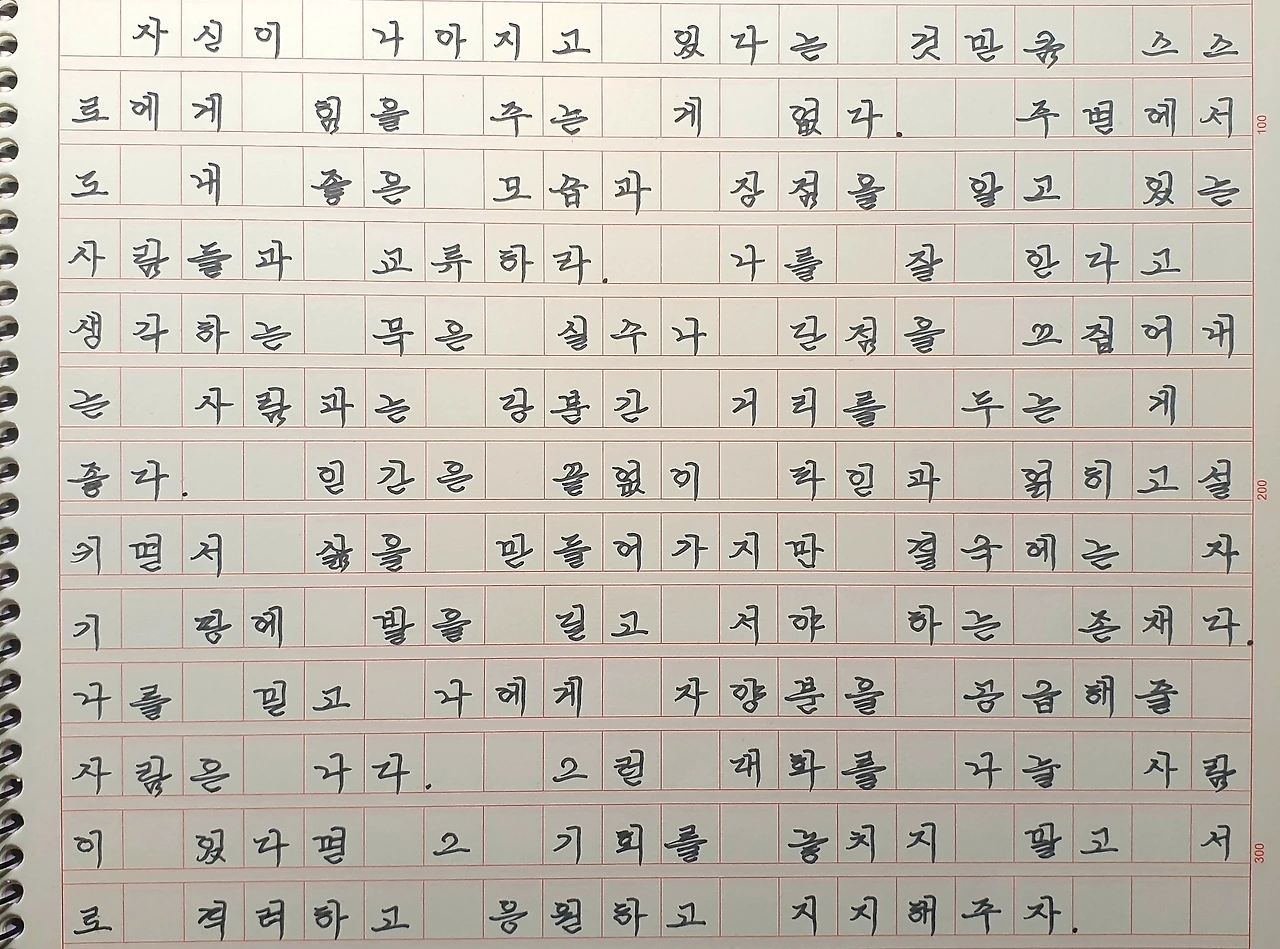 자신이 나아지고 있다는 것만큼 스스
로에게 힘을 주는 게 없다. 주변에서
도 내 좋은 모습과 장점을 알고 있는
사람들과 교류하라. 나를 잘 안다고
생각하는 묵은 실수나 단점을 끄집어내
는 사람과는 당분간 거리를 두는 게
좋다. 인간은 끝없이 타인과 얽히고설
키면서 삶을 만들어가지만 결국에는 자
기 땅에 발을 딛고 서야 하는 존재다.
나를 믿고 나에게 자양분을 공급해줄
사람은 나다. 그런 대화를 나눌 사람
이 있다면 그 기회를 놓치지 말고 서
로 격려하고 응원하고 지지해주자.
100
200
300